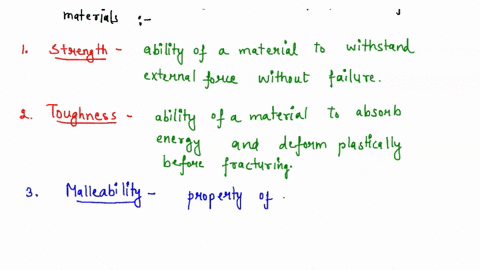 materials :-
1. Strength - ability of a material to withstand
external force without failure.
2. Toughness - ability of a material to absorb
energy and deform plastically
before fracturing.
3. Malleability - property of